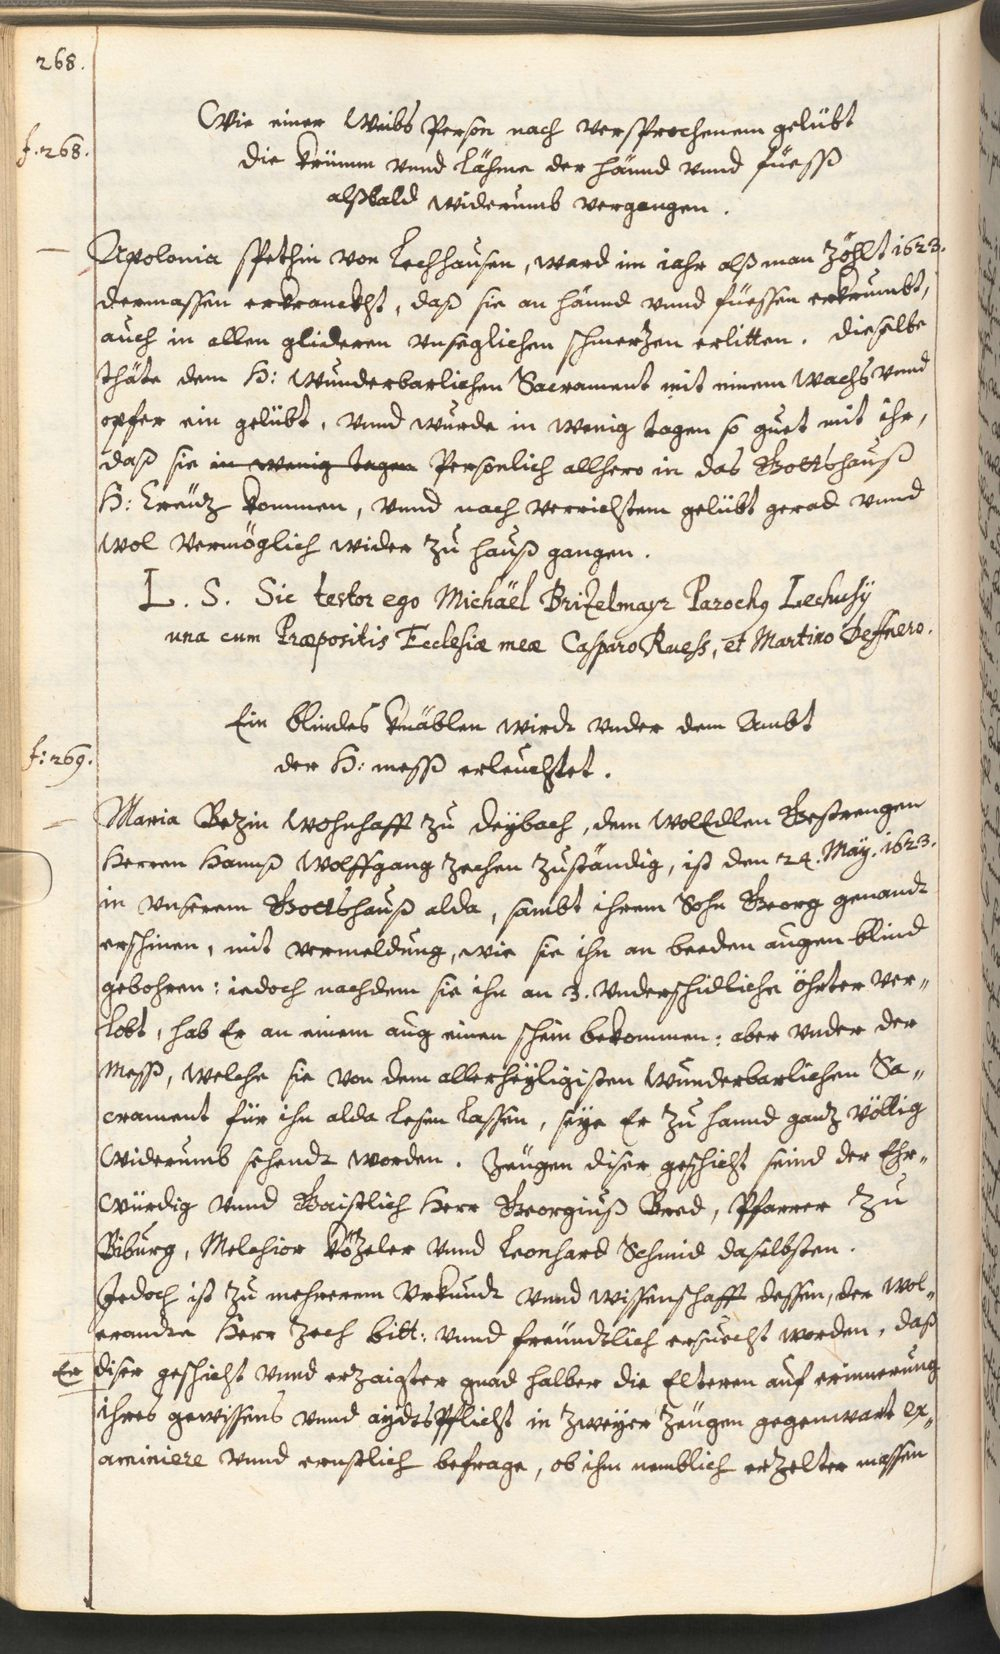 268.
Wie einer Weibs Person nach versprochenem gelübt
f. 268.
die krümm vnnd Lähme der hännd vnnd füeß
alßbald widerumb vergangen.
Apolonia Spethin von Lechhausen, ward im iahr alß man zöhlt 1623.
dermassen erkranckht, daß sie an hännd vnnd füessen erkrumbt,
auch in allen glideren vnseglichen schmerzen erlitten. Dieselbe
thäte dem H: Wunderbarlichen Sacrament mit einem Wachs vnnd
opfer ein gelübt, vnnd wurde in wenig tagen so guet mit ihr,
daß sie in wenig tagen Persönlich allhero in das Gottshauß
H: Creüz kommen, vnnd nach verrichtem gelübt gerad vnnd
wol vermöglich wider zu hauß gangen.
L. S. Sic testor ego Michaël Brizelmayr Parochus
una cum Præpositis Ecclesiæ meæ Casparo Ruess, et Martino Deffnero.
Ein blindes Knäblen wirdt vnder dem Ambt
f: 269.
der H: mess erleuchtet.
Maria Bezin wohnhafft zu Deybach, dem WolEdlen Gestrengen
Herren Hannß Wolffgang Zechen zuständig, ist den 24. May. 1623.
in vnserem Gottshauß alda, sambt ihrem Sohn Georg genandt
erschinen, mit vermeldung, wie sie ihn an beeden augen blind
gebohren: iedoch nachdem sie ihn an 3. vnderschidliche öhrter ver„
lobt, hab Er an einem aug einen schein bekommen: aber vnder der
Mess, welche sie von dem allerheyligisten Wunderbarlichen Sa„
crament für ihn alda lesen lassen, seye Er zu hannd ganz völlig
widerumb sehendt worden. Zeügen diser geschicht seind der Ehr„
würdig vnnd Gaistlich Herr Georgiuß Bred, Pfarrer zu
Biburg, Melchior Közeler vnnd Leonhard Schmid daselbsten.
Jedoch ist zu mehrerem Vrkundt vnnd wissenschafft dessen, der wol„
ernandte Herr Zech bitt: vnnd freündtlich ersuecht worden, daß
Er diser geschicht vnnd erzaigter gnad halber die Elteren auf erinnerung
ihres gewissens vnnd aydtsPflicht in zweyer Zeügen gegenwart ex„
aminiere vnnd ernstlich befrage, ob ihm nemblich erzelter massen